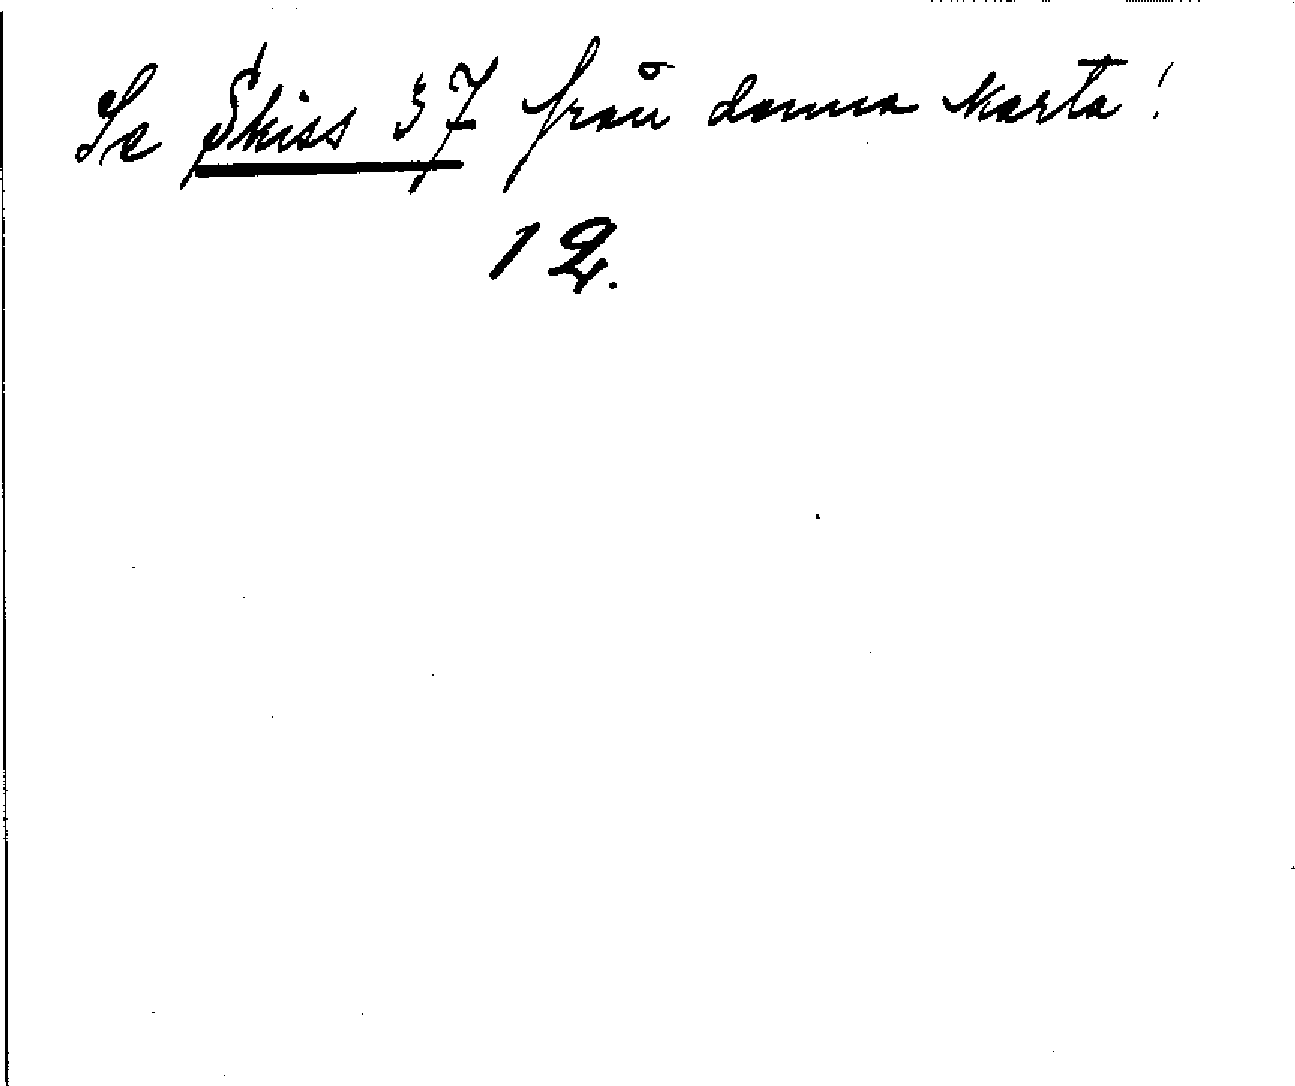 Se Skiss 37 från denna Karta!
12.